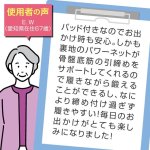 使用者の声
E.W
(愛知県在住67歳)
パッド付きなのでお出
かけ時も安心。しかも
裏地のパワーネットが
骨盤底筋の引締めを
サポートしてくれるの
で履きながら鍛える
ことができるし、なに
より締め付け過ぎず
履きやすい!毎日のお
出かけがとても楽し
みになりました!